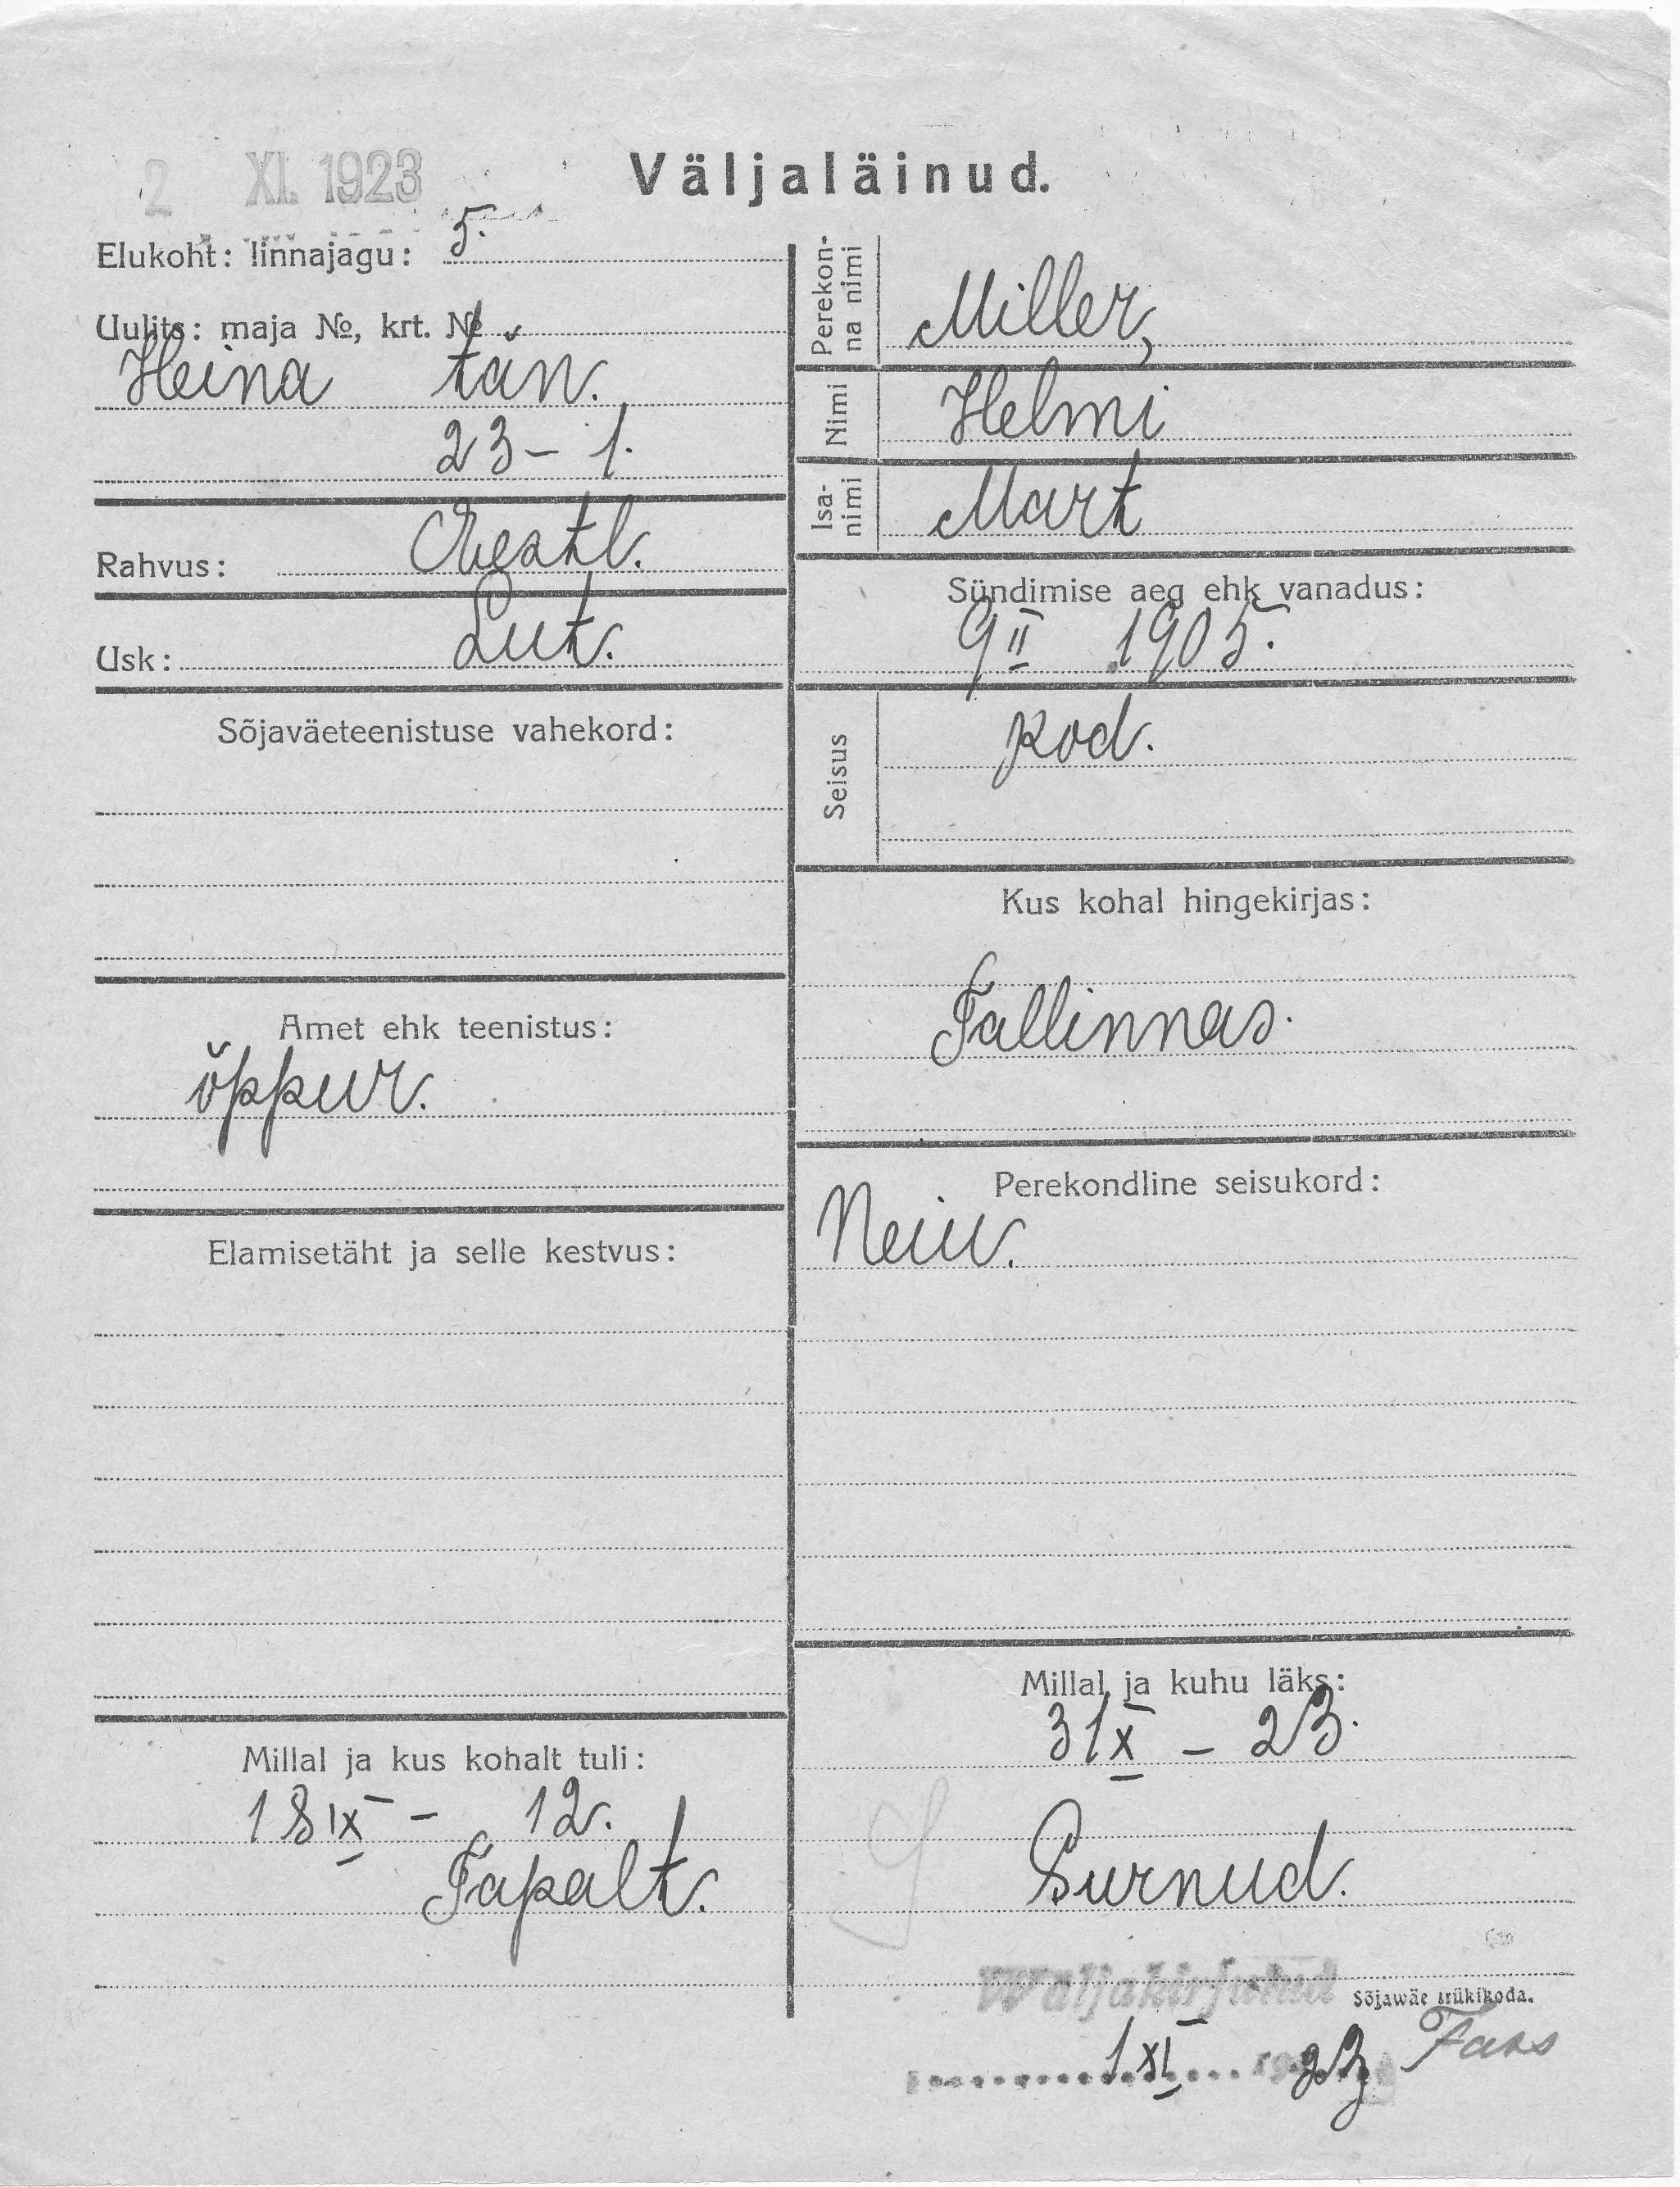 2 XI. 1923
Väljaläinud.
Elukoht: linnajagu: 5.
Uulits: maja №, krt. №
Heina tän.
23 – 1.
Rahvus: Eestl.
Usk: Lut.
Sõjaväeteenistuse vahekord:
Amet ehk teenistus:
õppur.
Elamisetäht ja selle kestvus:
Millal ja kus kohalt tuli:
18 IX – 12.
Tapalt.
Perekon-
na nimi
Miller,
Nimi Helmi
Isa-
nimi
Mart
Sündimise aeg ehk vanadus:
9 II 1905.
Seisus kod.
Kus kohal hingekirjas:
Tallinnas.
Perekondline seisukord:
Neiu.
Millal ja kuhu läks:
31 X – 23.
Surnud.
Wäljakirjutud
Sõjawäe trükikoda.
1 XI 192 23